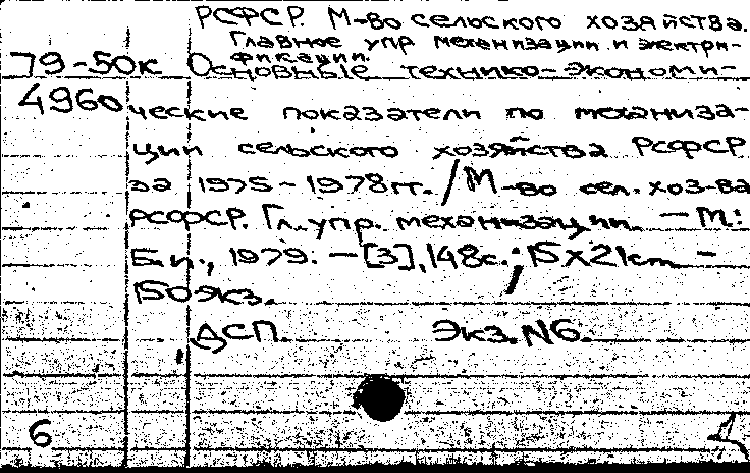 РСФСР. М-во сельского хозяйства.
Главное упр механизации и электри-
фикации.
79-50к Основные технико-экономи-
4960 ческие показатели по механиза-
ции сельского хозяйства РСФСР
за 1975-1978гг. / М-во сел. хоз-ва
РСФСР. Гл. упр. механизации. - М.:
Б.и., 1979. - [3], 148с.; 15х21см -
150экз.
ДСП. Экз. N6.
6 Д